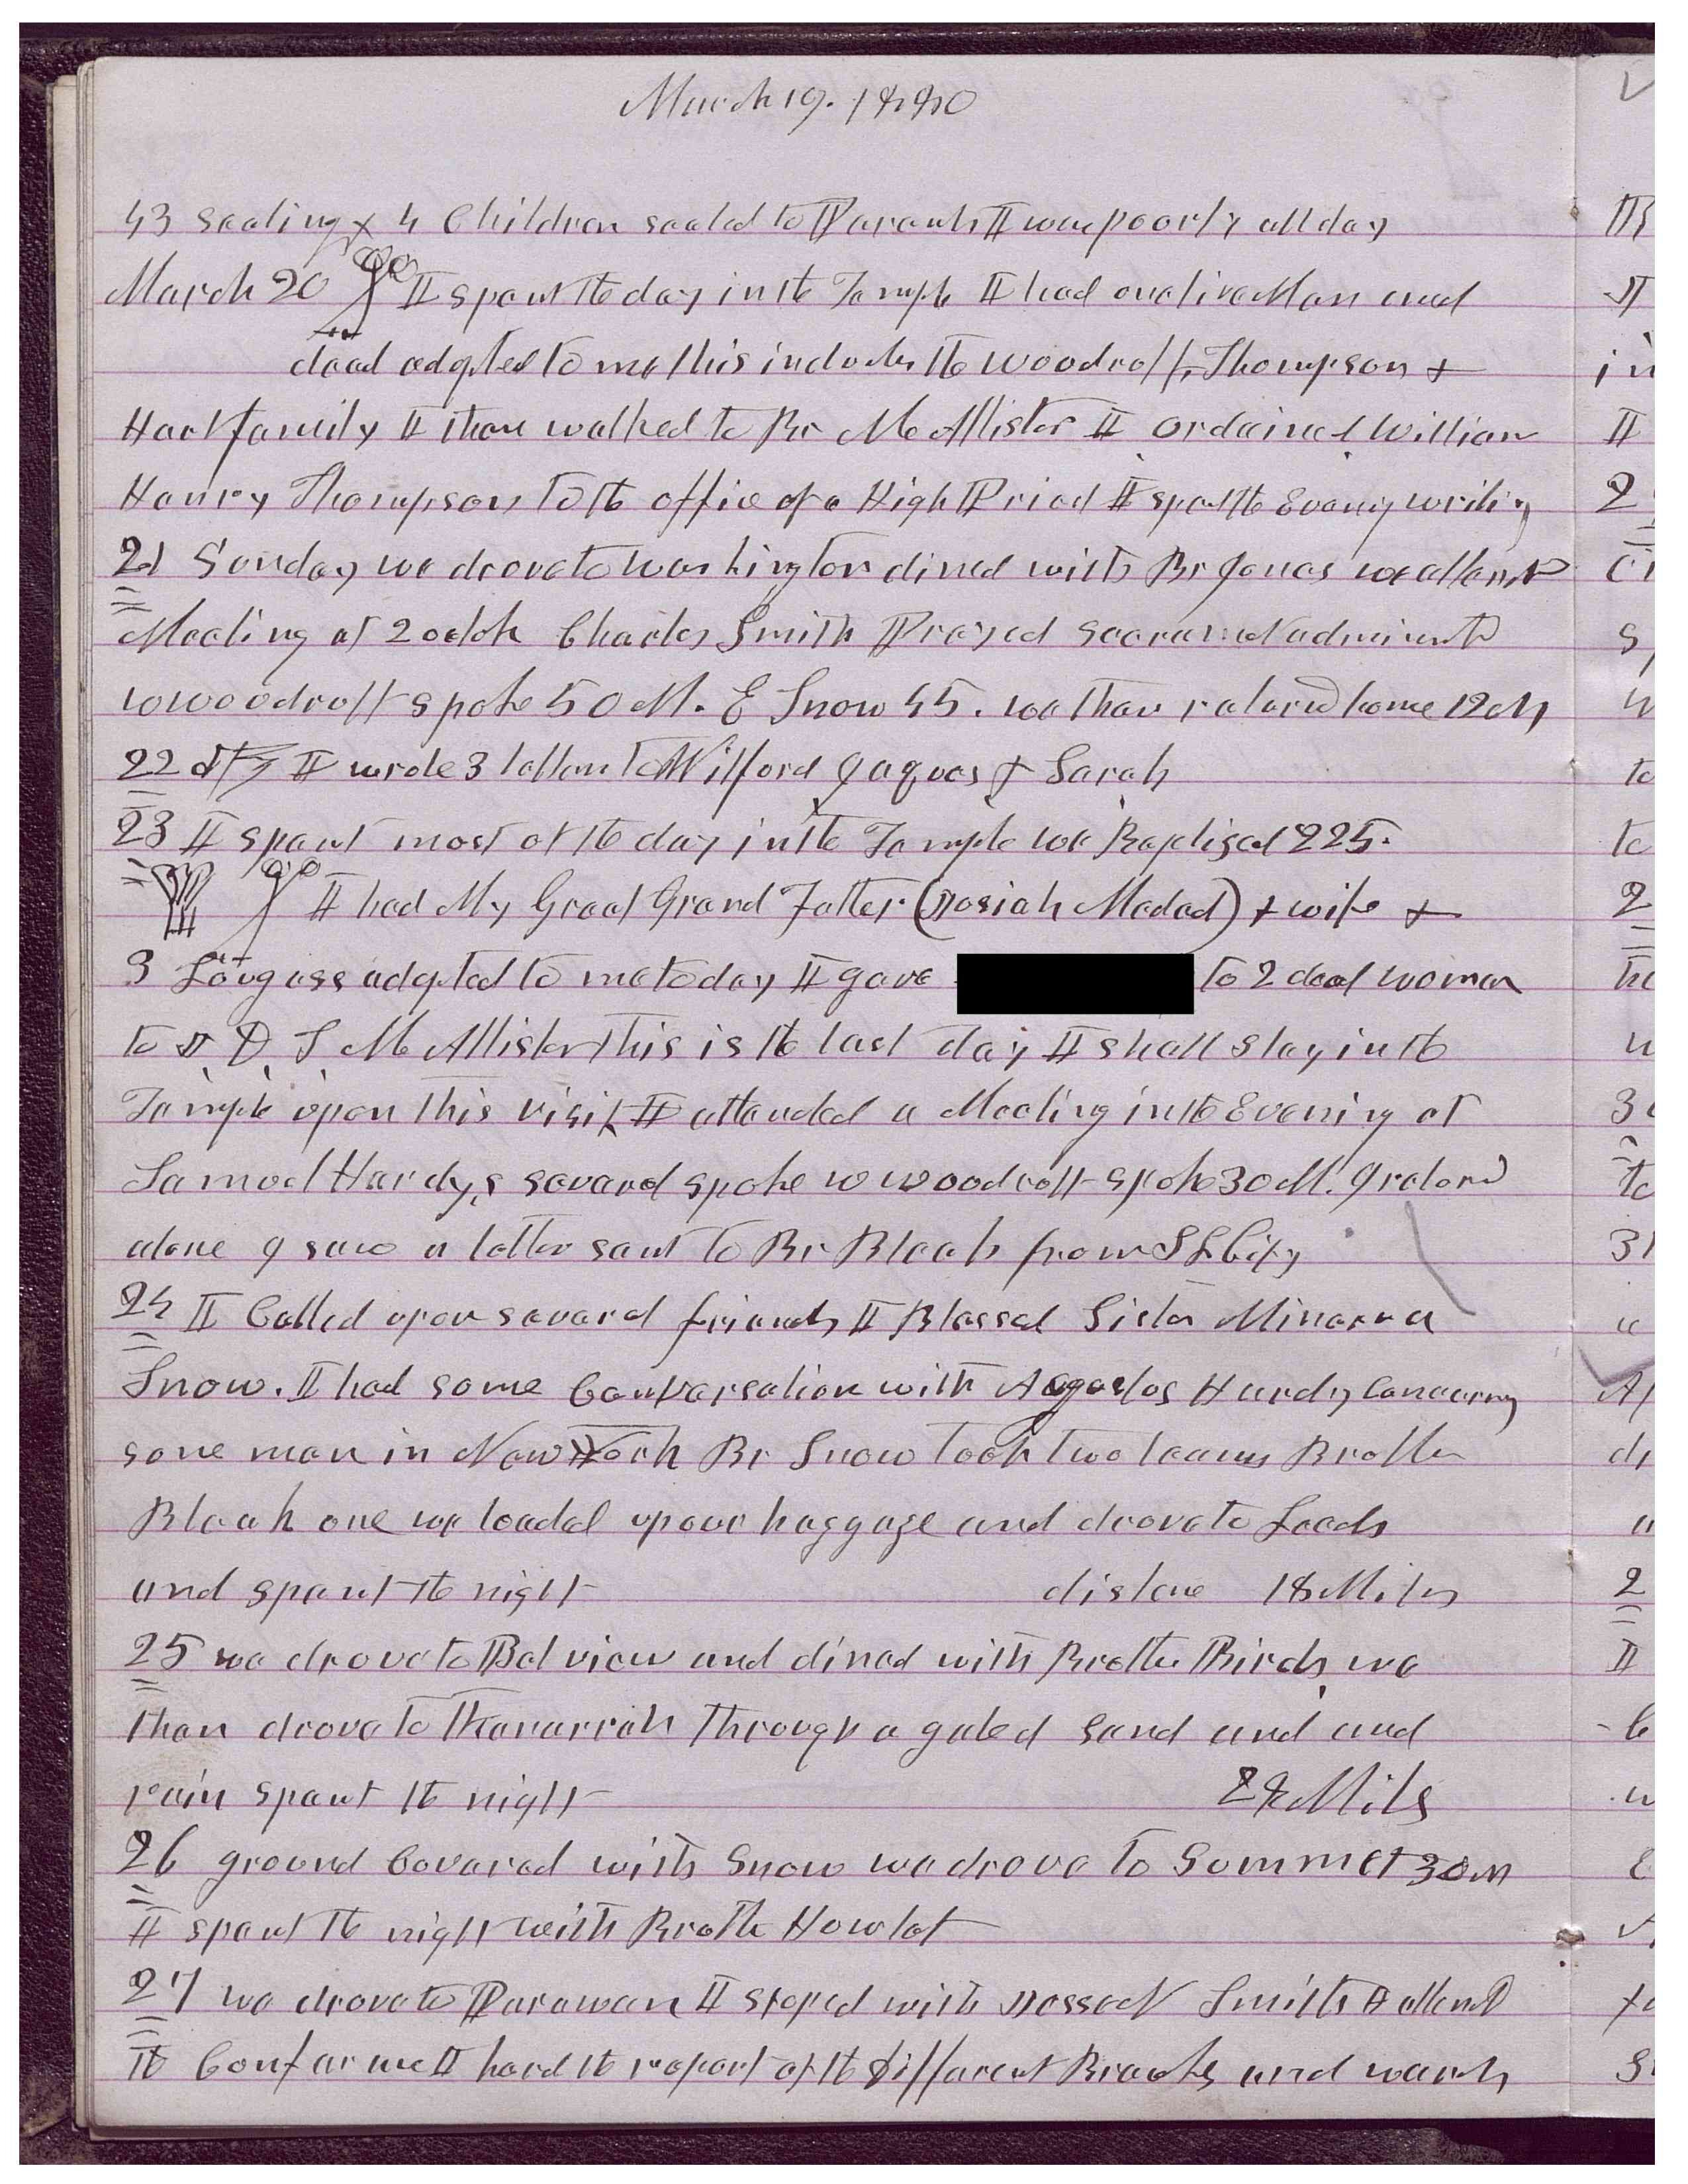 March 19. 1880
43 sealing & 4 Children sealed to Parents I was poorly all day
March 20 I spent the day in the Temple I had one live Man and
dead adopted to me this includes the Woodruff, Thompson &
Hart family I then walked to Br McAllister I ordained William
Henry Thompson to the office of a High Priest I spent the Evenig writing
21 Sunday we drove to Washington dined with Br Jones we attend
Meeting at 2 oclok Charles Smith Prayed sacrament administed
W Woodruff spoke 50 M. E Snow 45. we then returnd home 12 M
22 I wrote 3 letters to Wilford Jaques & Sarah
23 I spent most of the day in the Temple we Baptized 225.
I had My Great Grand Father (Josiah Medad) & wife &
3 adopted to me today I gave to 2 dead women
to J, D, T, McAllister This is the last day I shall stay in the
Temple upon this visit I attended a Meeting in the Evening at
Samuel Hardy,s several spoke W Woodruff spoke 30 M. I returnd
alone I saw a letter sent to Br Bleak from S L City
24 I Called upon several friends I Blessed Sister Minerva
Snow. I had some Conversation with Agustus Hardy Concerning
some men in New York Br Snow took two teams Brother
Bleak one we loaded up our baggage and drove to Leeds
and spent the night distance 18 Miles
25 we drove to Belview and dined with Brother Birds, we
then drove to Kanarrah through a gale of sand and and
rain spent the night 28 Miles
26 ground Covered with Snow we drove to Summet 30 M
I spent the night with Brothe Howlet
27 we drove to Parowan I stoped with Jesse N Smith I attend
the Conference I herd the report of the different Branches and wards